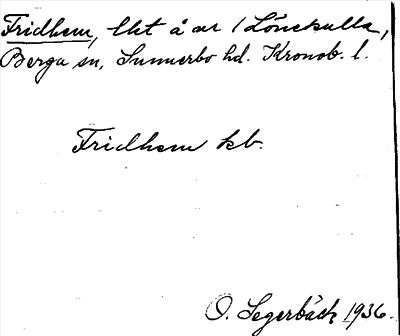 Fridhem, lht å av 1 Lönekulla,
Berga sn, Sunnerbo hd. Kronob. l.
Fridhem kb.
O. Segerbäck 1936.